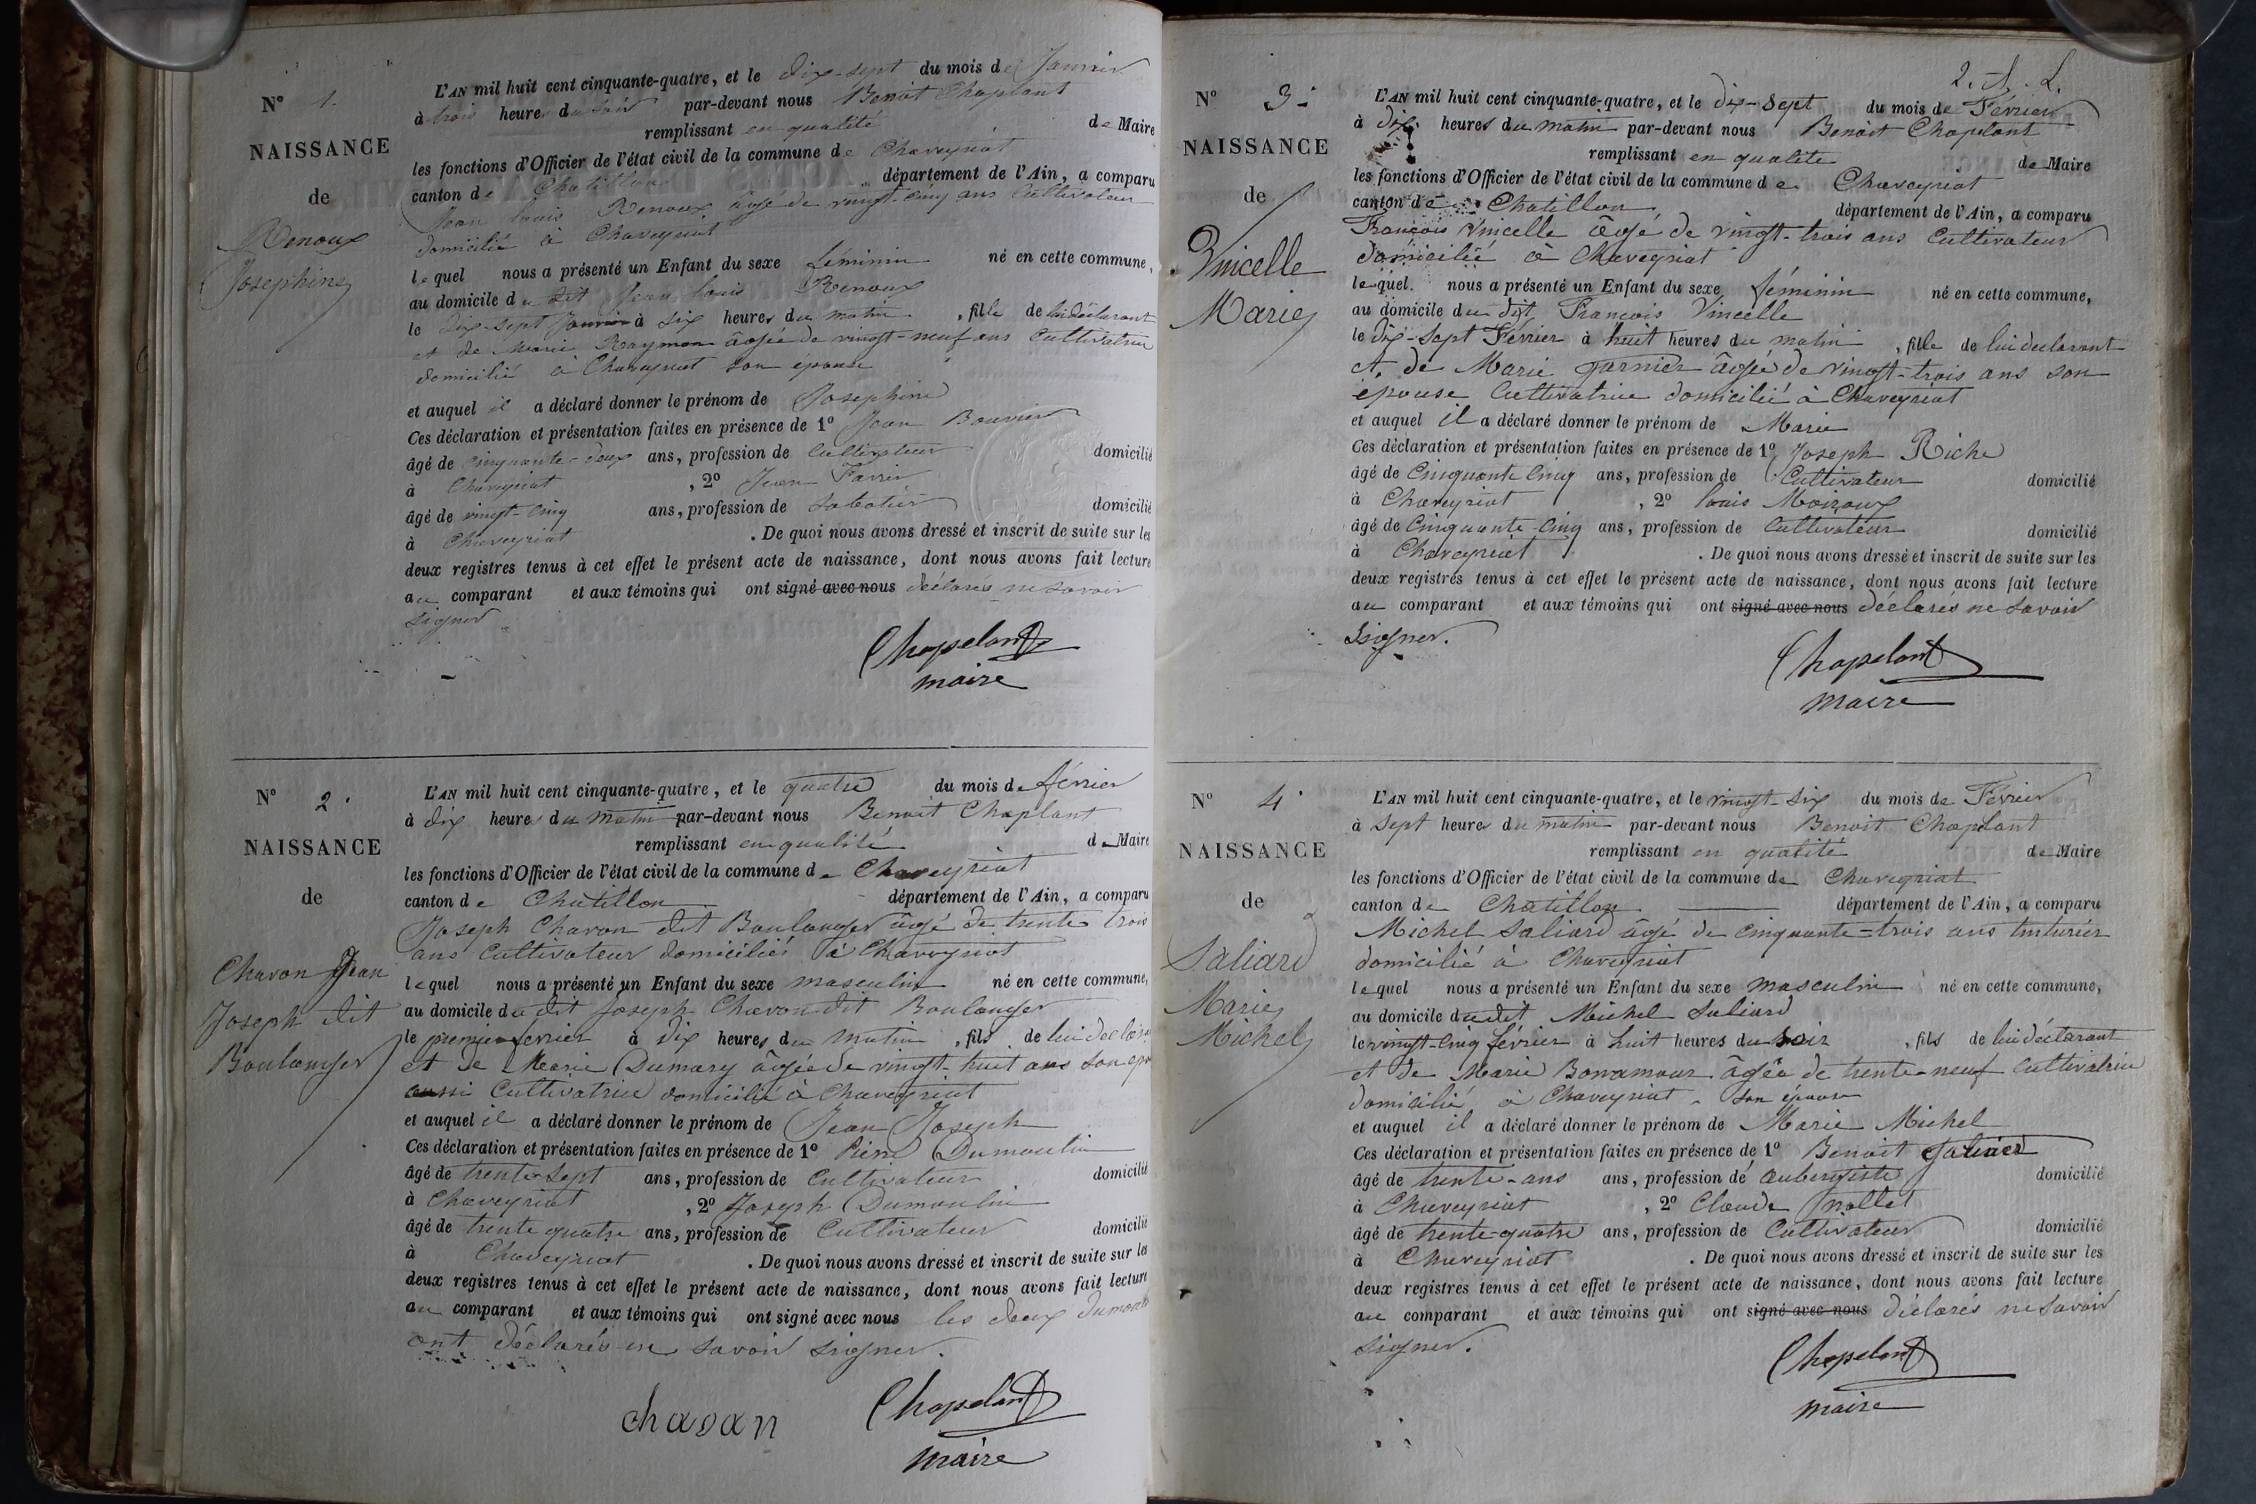 N° 1.
NAISSANCE
de
Renoux
Josephine
L'AN mil huit cent cinquante-quatre, et le dix-sept du mois de Janvier
à trois heures du soir par-devant nous Benoit Chaplant
remplissant en qualité de Maire
les fonctions d'Officier de l'état civil de la commune de Chaveyriat
canton de Chatillon département de l'Ain, a comparu
Jean Louis Renoux âgé de vingt-cinq ans Cultivateur
domicilié à Chaveyriat
lequel nous a présenté un Enfant du sexe féminin né en cette commune,
au domicile du dit Jean Louis Renoux
le dix-sept Janvier à six heures du matin, fille de lui déclarant
et de Marie Raymon âgée de vingt-neuf ans Cultivatrice
domicilié à Chaveyriat son épouse
et auquel il a déclaré donner le prénom de Josephine
Ces déclaration et présentation faites en présence de 1° Jean Bouvier
âgé de cinquante-deux ans, profession de Cultivateur domicilié
à Chaveyriat, 2° Jean
âgé de vingt-cinq ans, profession de Sabotier domicilié
à Chaveyriat. De quoi nous avons dressé et inscrit de suite sur les
deux registres tenus à cet effet le présent acte de naissance, dont nous avons fait lecture
au comparant et aux témoins qui ont signé avec nous déclarés ne savoir
signer
Chapelant
maire
N° 2.
NAISSANCE
de
Chavon Jean
Joseph dit
Boulanger
L'AN mil huit cent cinquante-quatre, et le quatre du mois de février
à dix heures du matin par-devant nous Benoit Chaplant
remplissant en qualité de Maire
les fonctions d'Officier de l'état civil de la commune de Chaveyriat
canton de Chatillon département de l'Ain, a comparu
Joseph Chavon dit Boulanger âgé de trente trois
ans Cultivateur domiciliés à Chaveyriat
lequel nous a présenté un Enfant du sexe masculin né en cette commune,
au domicile du dit Joseph Chavon dit Boulanger
le premier fevrier à dix heures du matin, fils de lui
et de Marie Dumary âgée de vingt-huit ans son
aussi Cultivatrice domicilié à Chaveyriat
et auquel il a déclaré donner le prénom de Jean Joseph
Ces déclaration et présentation faites en présence de 1° Pierre Dumoulin
âgé de trente-sept ans, profession de Cultivateur domicilié
à Chaveyriat, 2° Joseph Dumoulin
âgé de trente quatre ans, profession de Cultivateur domicilié
à Chaveyriat. De quoi nous avons dressé et inscrit de suite sur les
deux registres tenus à cet effet le présent acte de naissance, dont nous avons fait lecture
au comparant et aux témoins qui ont signé avec nous les deux
ont déclarés ne savoir signer.
chavan
Chapelant
maire
2. A. L.
N° 3.
NAISSANCE
de
Vincelle
Marie
L'AN mil huit cent cinquante-quatre, et le dix-sept du mois de Février
à dix heures du matin par-devant nous Benoit Chaplant
remplissant en qualité de Maire
les fonctions d'Officier de l'état civil de la commune de Chaveyriat
canton de Chatillon département de l'Ain, a comparu
François Vincelle âgé de vingt-trois ans Cultivateur
domicilié à Chaveyriat
lequel nous a présenté un Enfant du sexe féminin né en cette commune,
au domicile du dit François Vincelle
le dix-sept Février à huit heures du matin, fille de lui declarant
et de Marie garnier âgée de vingt-trois ans son
épouse Cultivatrice domicilié à Chaveyriat
et auquel il a déclaré donner le prénom de Marie
Ces déclaration et présentation faites en présence de 1° Joseph Riche
âgé de cinquante cinq ans, profession de Cultivateur domicilié
à Chaveyriat, 2° Louis Moiroux
âgé de Cinquante-Cinq ans, profession de Cultivateur domicilié
à Chaveyriat. De quoi nous avons dressé et inscrit de suite sur les
deux registres tenus à cet effet le présent acte de naissance, dont nous avons fait lecture
au comparant et aux témoins qui ont signé avec nous déclarés ne savoir
signer.
Chapelant
maire
N° 4.
NAISSANCE
de
Saliard
Marie
Michel
L'AN mil huit cent cinquante-quatre, et le vingt-six du mois de Février
à sept heures du matin par-devant nous Benoit Chaplant
remplissant en qualité de Maire
les fonctions d'Officier de l'état civil de la commune de Chaveyriat
canton de Chatillon département de l'Ain, a comparu
Michel Saliard âgé de cinquante-trois ans tinturier
domicilié à Chaveyriat
lequel nous a présenté un Enfant du sexe masculin né en cette commune,
au domicile du dit Michel Saliard
le vingt-cinq février à huit heures du soir, fils de lui déclarant
et de Marie Bonamour âgée de trente-neuf Cultivatrice
domicilié à Chaveyriat son épouse
et auquel il a déclaré donner le prénom de Marie Michel
Ces déclaration et présentation faites en présence de 1° Benoit
âgé de trente-ans ans, profession de aubergiste domicilié
à Chaveyriat, 2° Claude
âgé de trente-quatre ans, profession de Cultivateur domicilié
à Chaveyriat. De quoi nous avons dressé et inscrit de suite sur les
deux registres tenus à cet effet le présent acte de naissance, dont nous avons fait lecture
au comparant et aux témoins qui ont signé avec nous déclarés ne savoir
signer.
Chapelant
maire